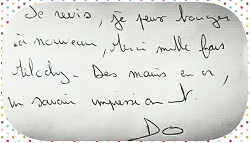 Je revis, je peux bouger
à nouveau, Merci mille fois
Mélody. Des mains en or,
un savoir impressionnt.
DO